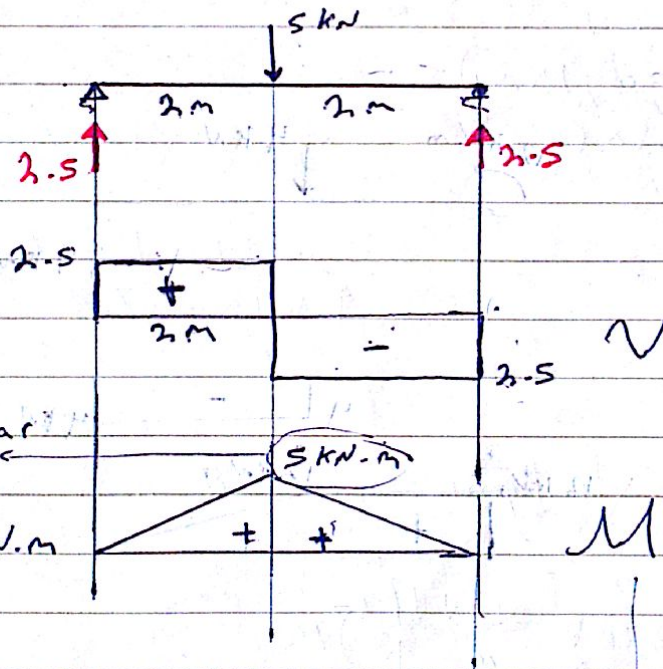 5 kN
2m 2m
2.5 2.5
2.5
+
2m
-
V
2.5
ar
5 kN.m
+ +
.m M